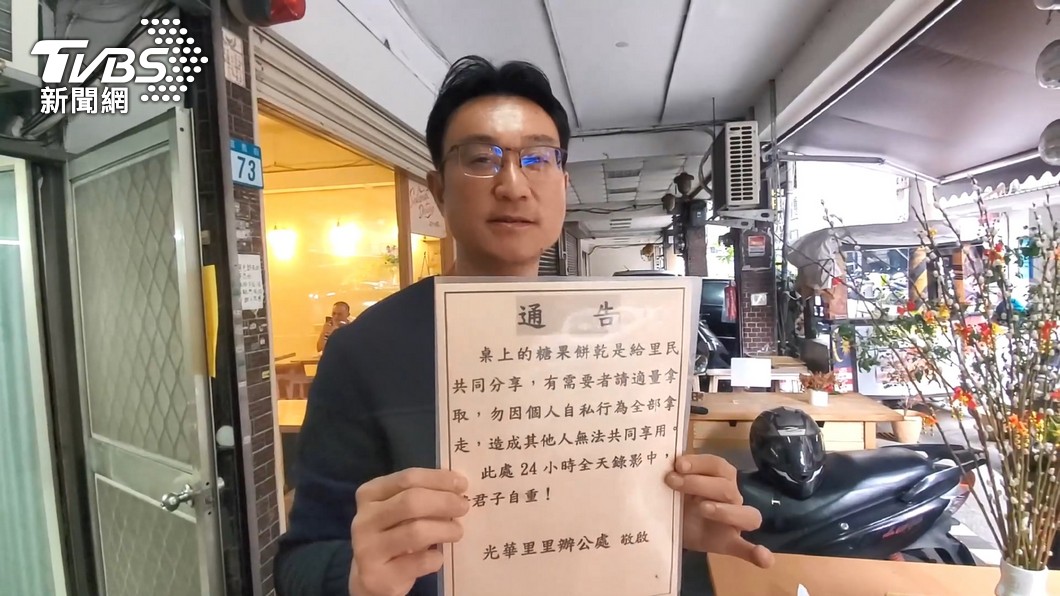 TVBS
新聞網
73
通 告
桌上的糖果餅乾是給里民
共同分享，有需要者請適量拿
取，勿因個人自私行為全部拿
走，造成其他人無法共同享用。
此處24小時全天錄影中，
君子自重！
光華里里辦公處 敬啟